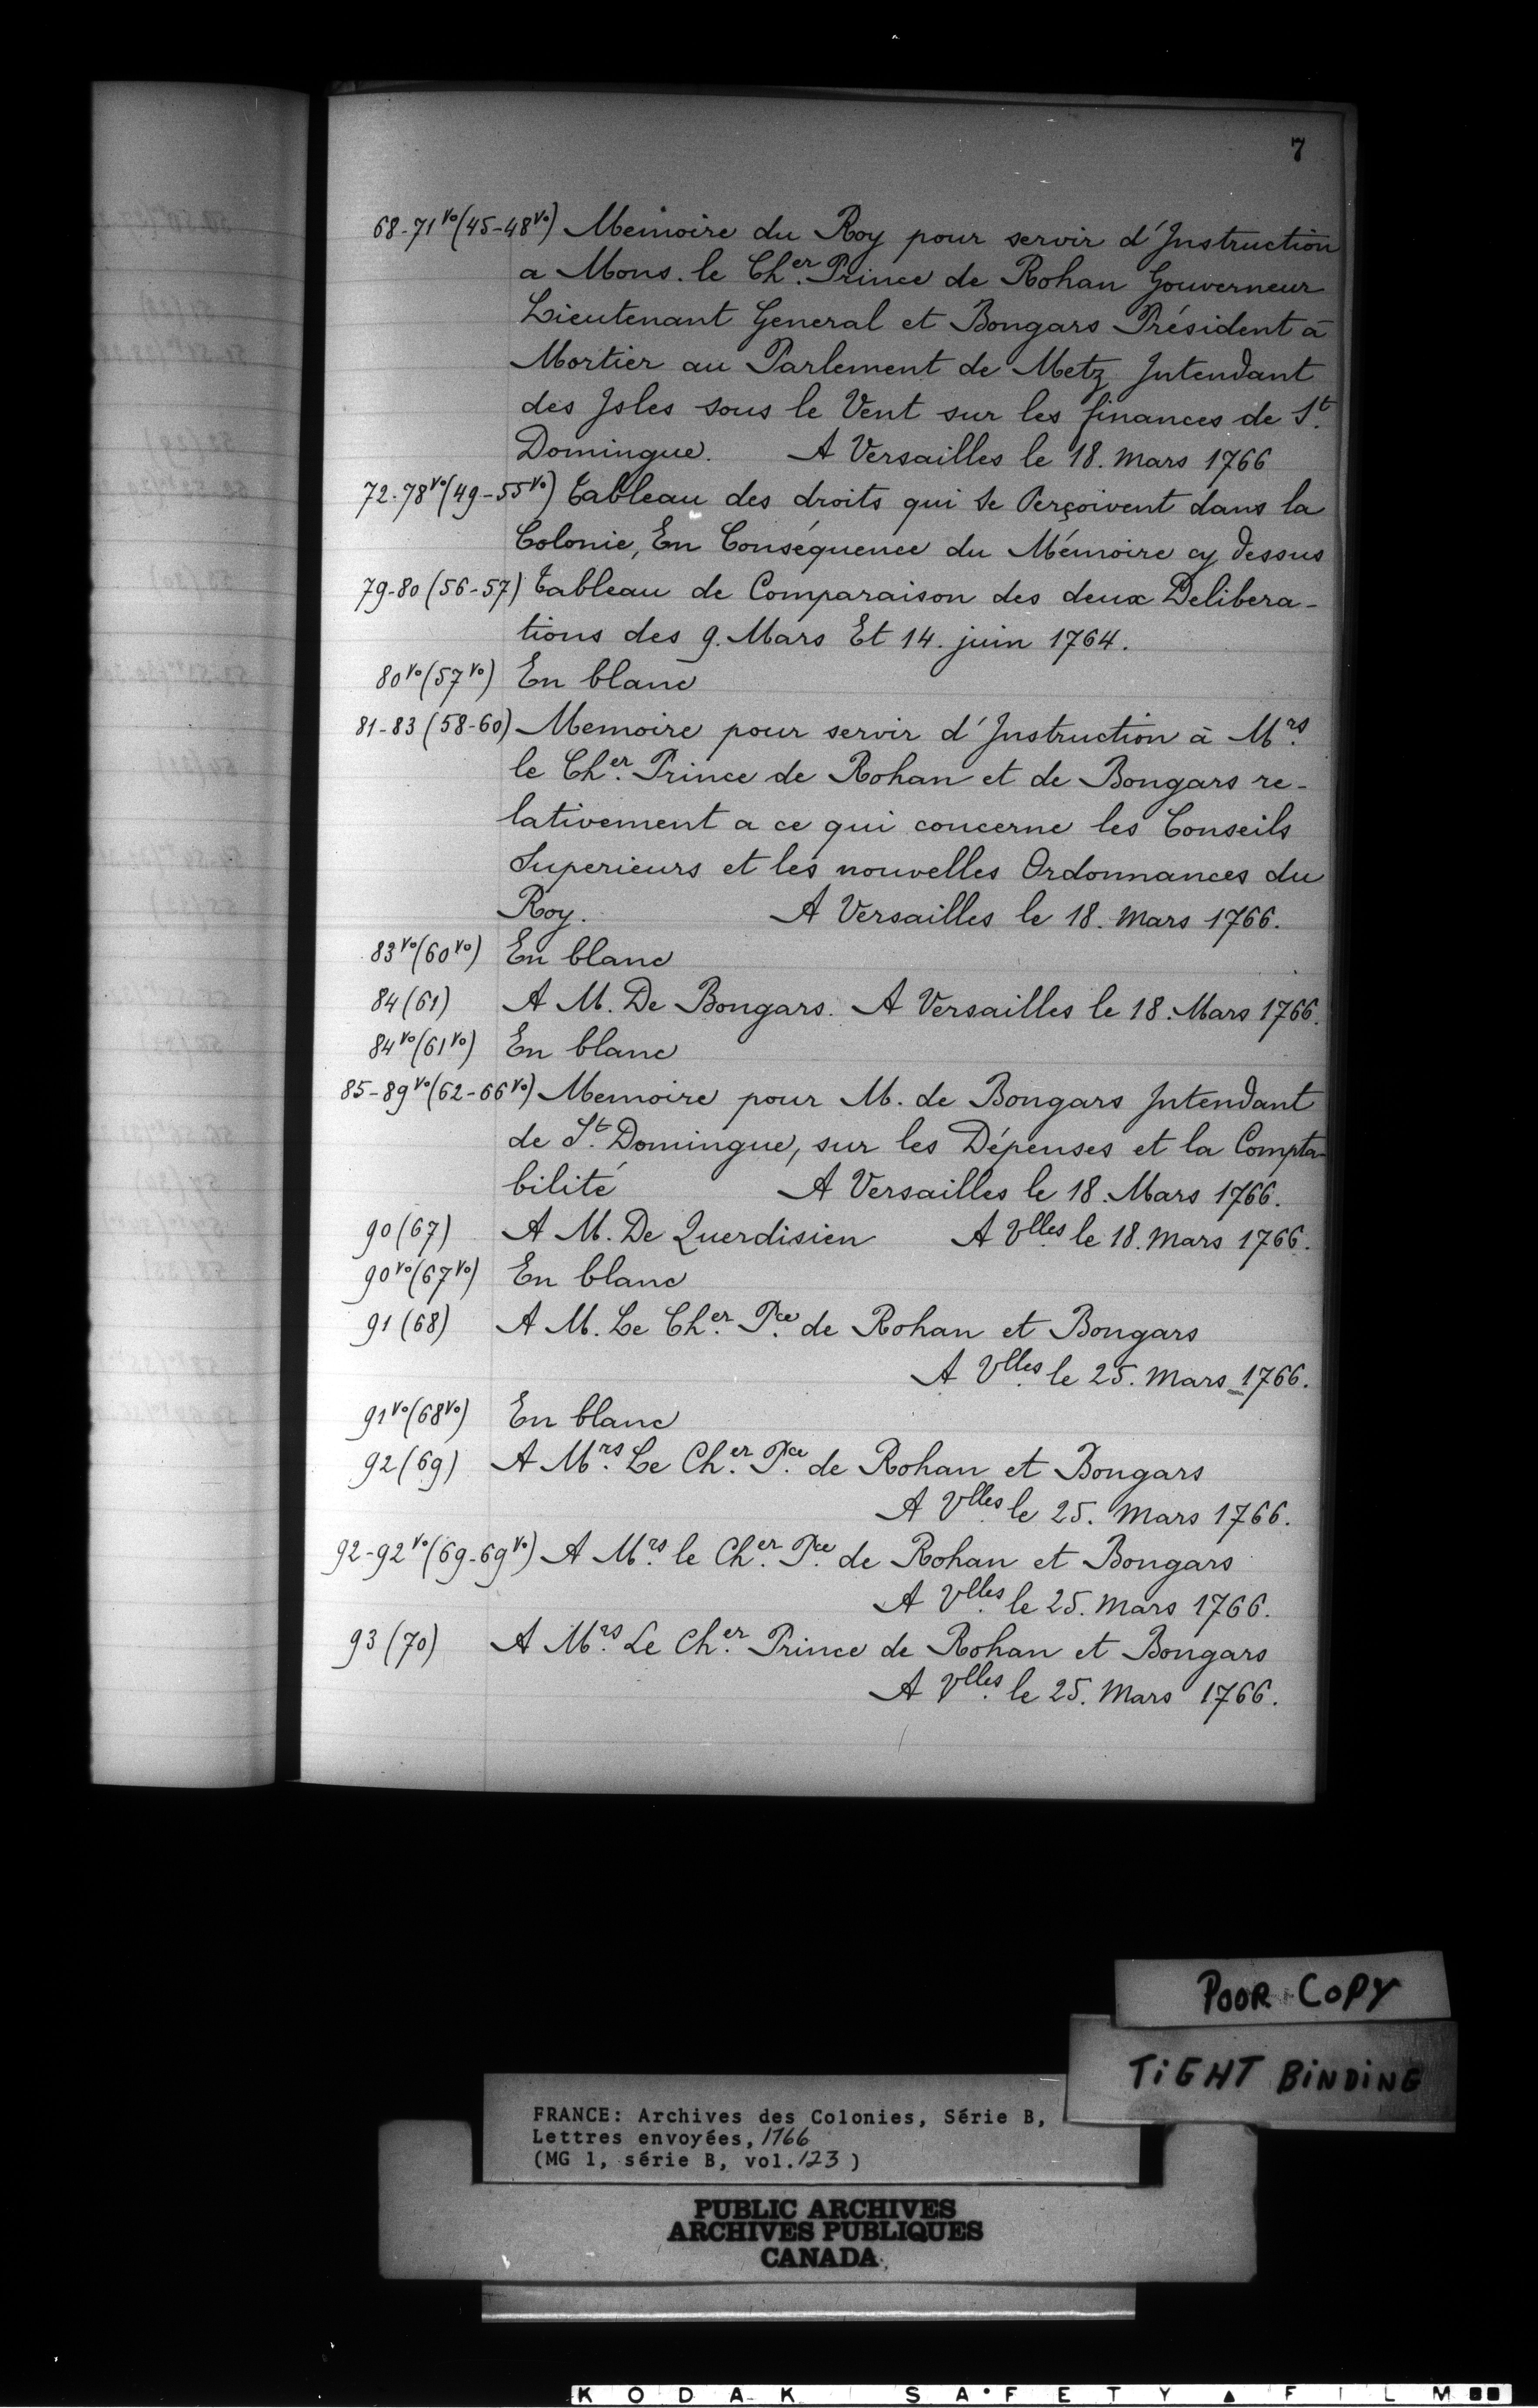 7
68-71vo(45-48vo) Memoire du Roy pour servir d'Instruction
a Mons. le Cher. Prince de Rohan Gouverneur
Lieutenant General et Bongars Président à
Mortier au Parlement de Metz Intendant
des Isles sous le Vent sur les finances de St.
Domingue. A Versailles le 18. mars 1766
72-78vo(49-55vo) Tableau des droits qui se Perçoivent dans la
Colonie, En Conséquence du Mémoire cy dessus
79-80 (56-57) Tableau de Comparaison des deux Delibera-
tions des 9. Mars Et 14. juin 1764.
80vo(57vo) En blanc
81-83 (58-60) Memoire pour servir d'Instruction à Mrs.
le Cher. Prince de Rohan et de Bongars re-
lativement a ce qui concerne les Conseils
Superieurs et les nouvelles Ordonnances du
Roy. A Versailles le 18. mars 1766.
83vo(60vo) En blanc
84 (61) A M. De Bongars. A Versailles le 18. Mars 1766.
84vo(61vo) En blanc
85-89vo(62-66vo) Memoire pour M. de Bongars Intendant
de St. Domingue, sur les Dépenses et la Compta-
bilité A Versailles le 18. Mars 1766.
90 (67) A M. De Querdisien A Vlles le 18. mars 1766.
90vo(67vo) En blanc
91 (68) A M. Le Cher. Pce. de Rohan et Bongars
A Vlles. le 25. mars 1766.
91vo(68vo) En blanc
92 (69) A Mrs. Le Cher. Pce. de Rohan et Bongars
A Vlles. le 25. Mars 1766.
92-92vo(69-69vo) A Mrs. le Cher. Pce. de Rohan et Bongars
A Vlles. le 25. Mars 1766.
93 (70) A Mrs. Le Cher. Prince de Rohan et Bongars
A Vlles. le 25. Mars 1766.
POOR COPY
TIGHT BINDING
FRANCE: Archives des Colonies, Série B,
Lettres envoyées, 1766
(MG 1, série B, vol. 123 )
PUBLIC ARCHIVES
ARCHIVES PUBLIQUES
CANADA
KODAK SAFETY ▲ FILM